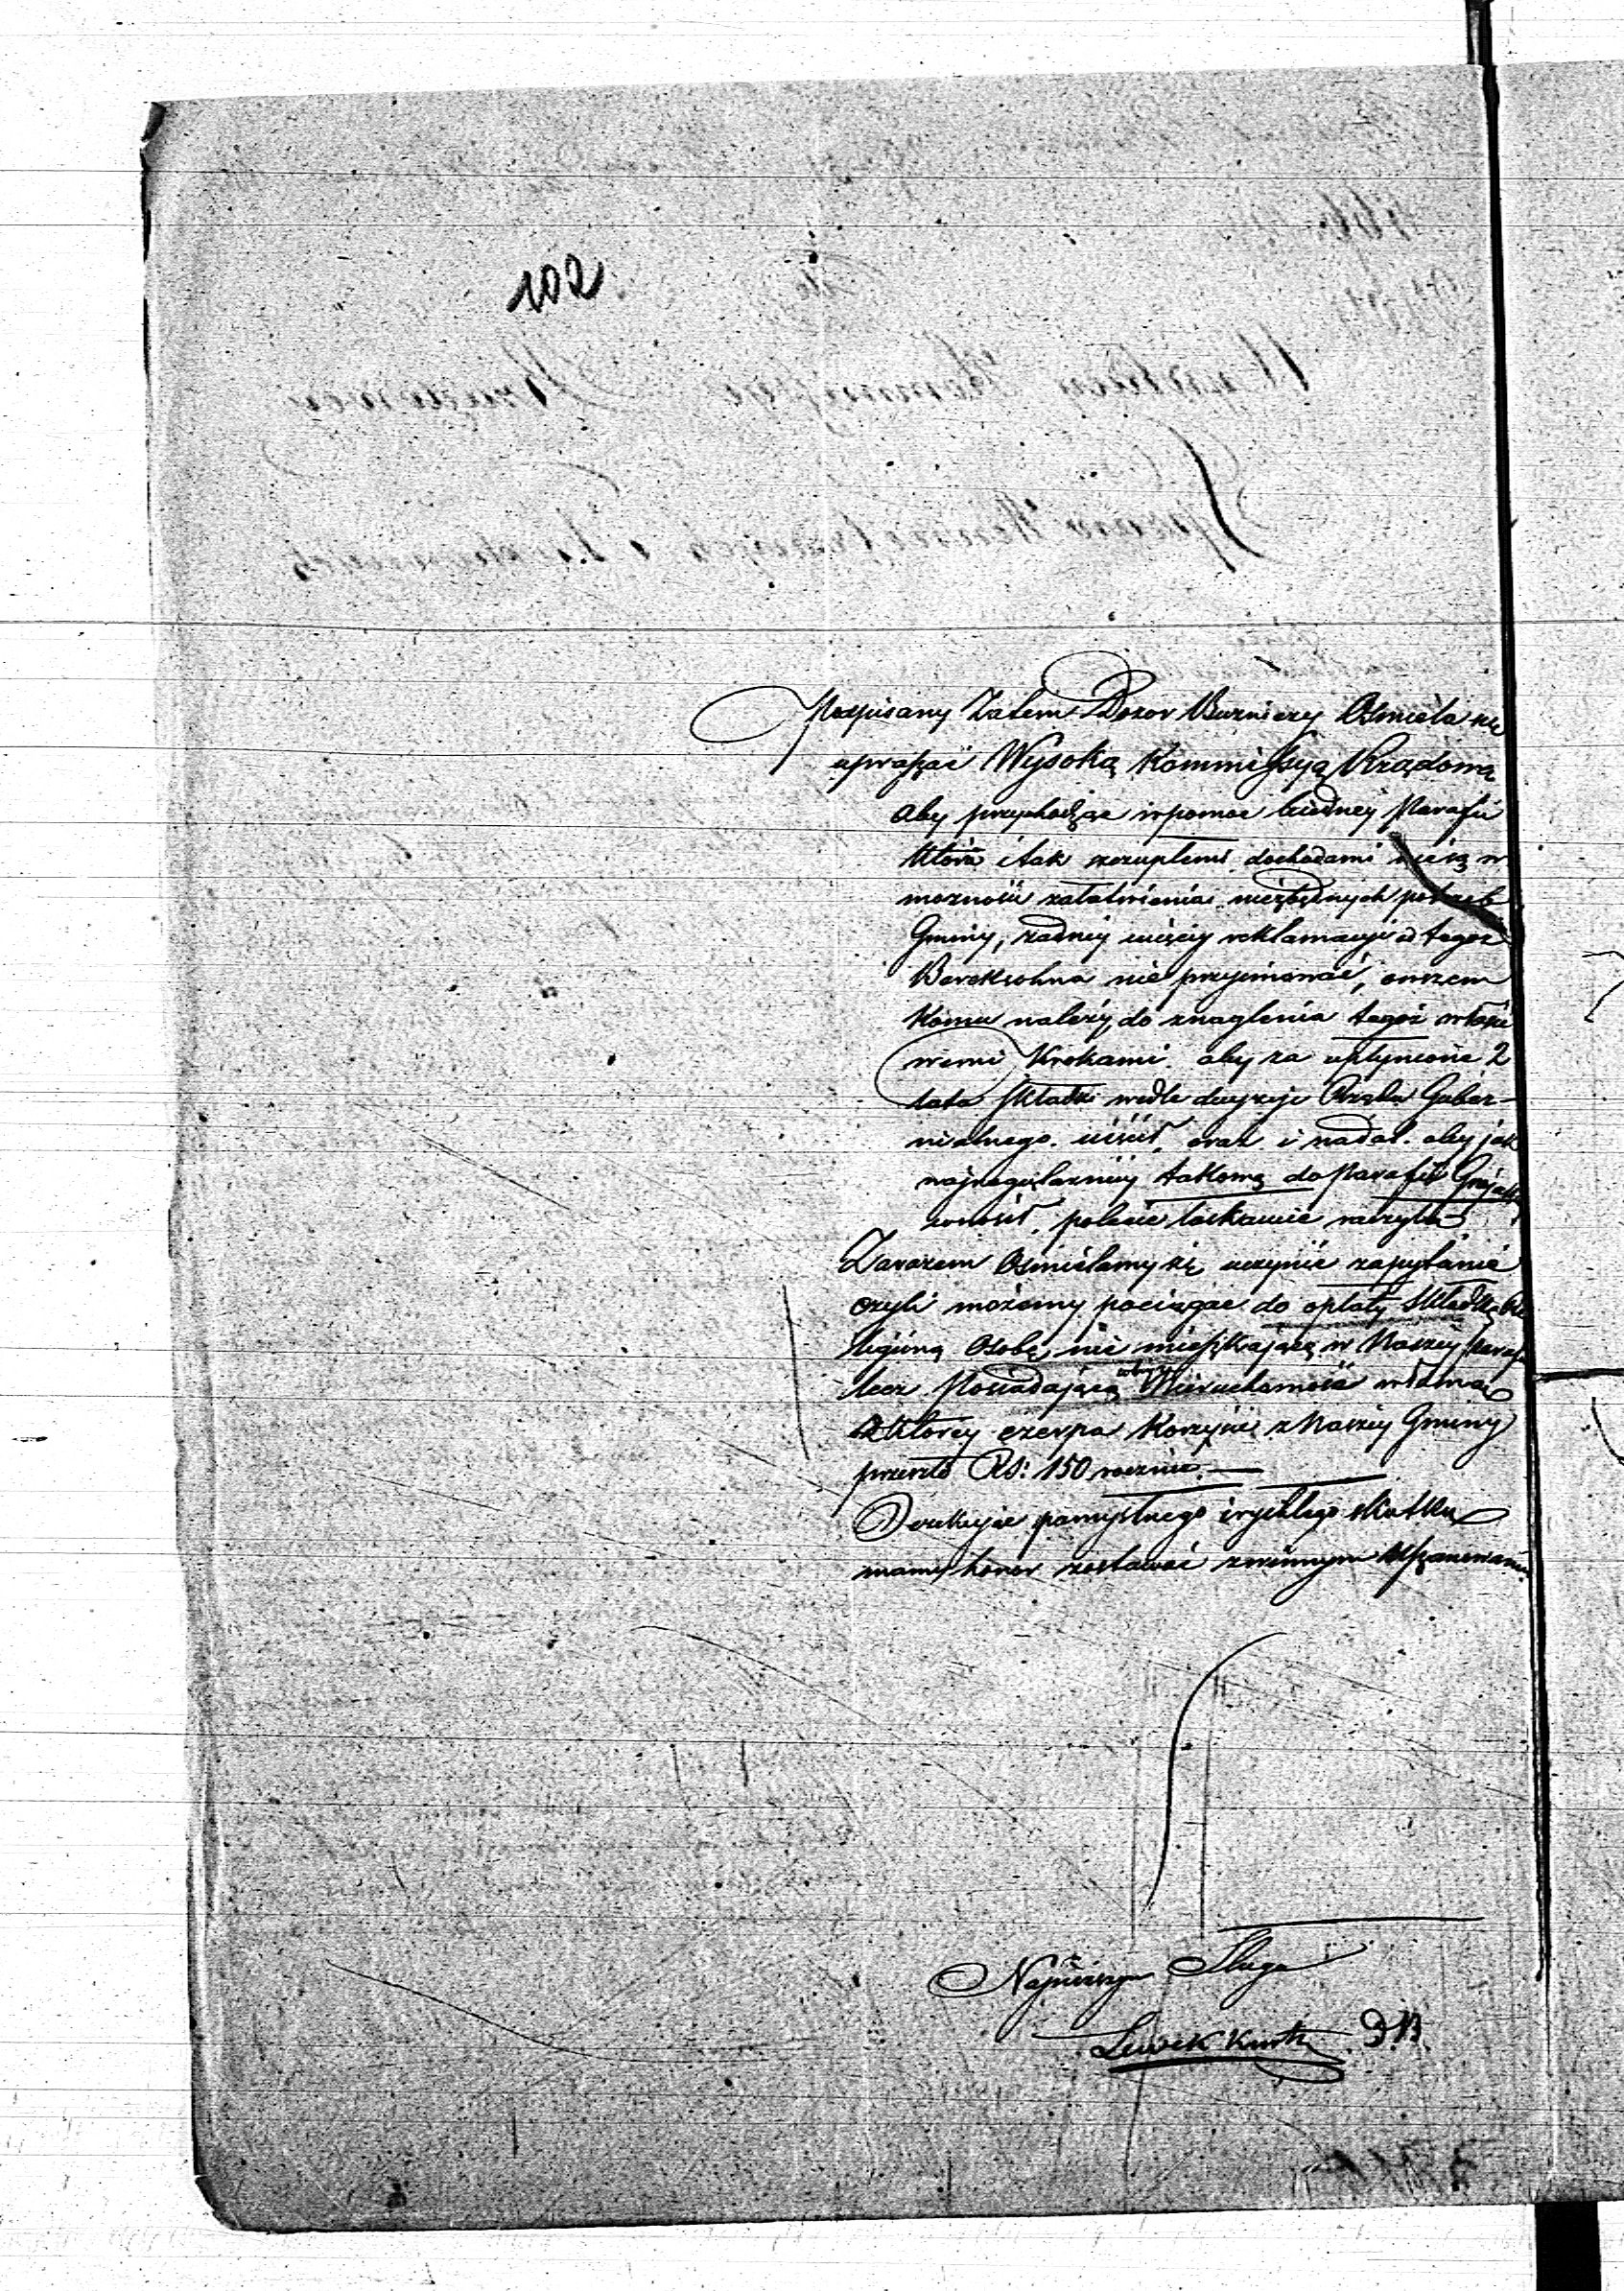 102
Podpisany Zatem Dozor Bużniczy Ośmiela się
upraszać Wysoką Kommissyą Rządową
aby przychodząc wpomoc biedney Parafii
która i tak szczupłemi dochodami nie są w
możności załatwienia niezbędnych potrzeb
Gminy, żadney więcey reklamacyi od tegoż
Bereksohna nie przyimować, owszem
komu należy, do znaglenia tegoż właści
wemi krokami. aby za upłynione 2
lata składki wedle decyzyi Rządu Guber-
nialnego. uiścił. oraz i nadal. aby jak
najregularniey takową do Parafii
wnosił. polecić łaskawie raczyła
Zarazem Ośmielamy się uczynić zapytanie
czyli możemy pociągać do opłaty Składką
ligijną Osobę, nie mieszkającą w Naszey Paraf
lecz Posiadającą Nieruchomość własną
z którey czerpa korzyści z Naszey Gminy
przeszło Rs: 150 rocznie.—
Oczekując pomyślnego i rychłego skutku
mamy honor zostawać z winnym uszanowaniem
Najniższym Sługa
Lewek D.B.